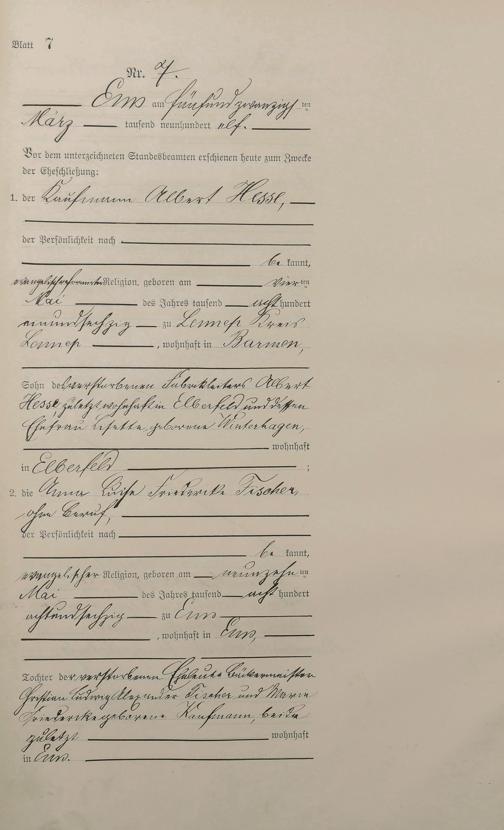 Blatt 7
Nr. 7.
Ems am fünfundzwanzigsten
März tausend neunhundert elf.
Vor dem unterzeichneten Standesbeamten erschienen heute zum Zwecke
der Eheschließung:
1. der Kaufmann Albert Hesse,
der Persönlichkeit nach
be kannt,
Religion, geboren am vierten
Mai des Jahres tausend acht hundert
neunundsechzig zu Lennep Kreis
Lennep, wohnhaft in Barmen,
Sohn des verstorbenen Fabrikleiters Albert
Hesse, zuletzt wohnhaft in Elberfeld und dessen
Ehefrau Lisette geborene Winterhagen,
wohnhaft
in Elberfeld ;
2. die Anna Luise Friedericke Fischer,
ohne Beruf,
der Persönlichkeit nach
be kannt,
evangelischer Religion, geboren am neunzehnten
Mai des Jahres tausend acht hundert
achtundsechzig zu Ems
, wohnhaft in Ems,
Tochter der verstorbenen Eheleute Bäckermeister
Christian Ludwig Alexander Fischer und Marie
Friedericke geborene Kaufmann, beide
zuletzt wohnhaft
in Ems.